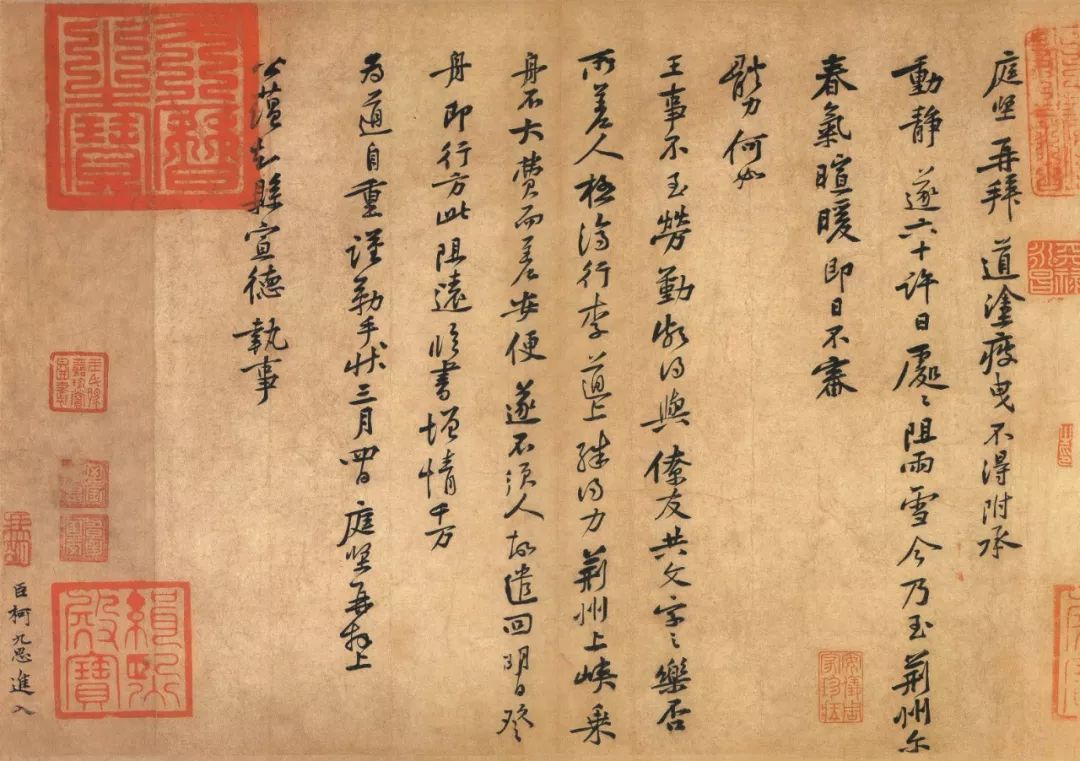 庭坚再拜道塗疲曳不得附承
動静遂六十許日處々阻雨雪今乃至荆州尔
春氣暄暖即日不審
體力何如
王事不至勞勤頗得與僚友共文字之樂否
所差人極濟行李道上殊得力荆州上峽乘
舟不大費而差安便遂不須人故遣回明日登
舟即行方此阻遠臨書增情千万
為道自重謹勒手狀三月四日庭坚再拜上
公藴知縣宣德執事
臣柯九思進入